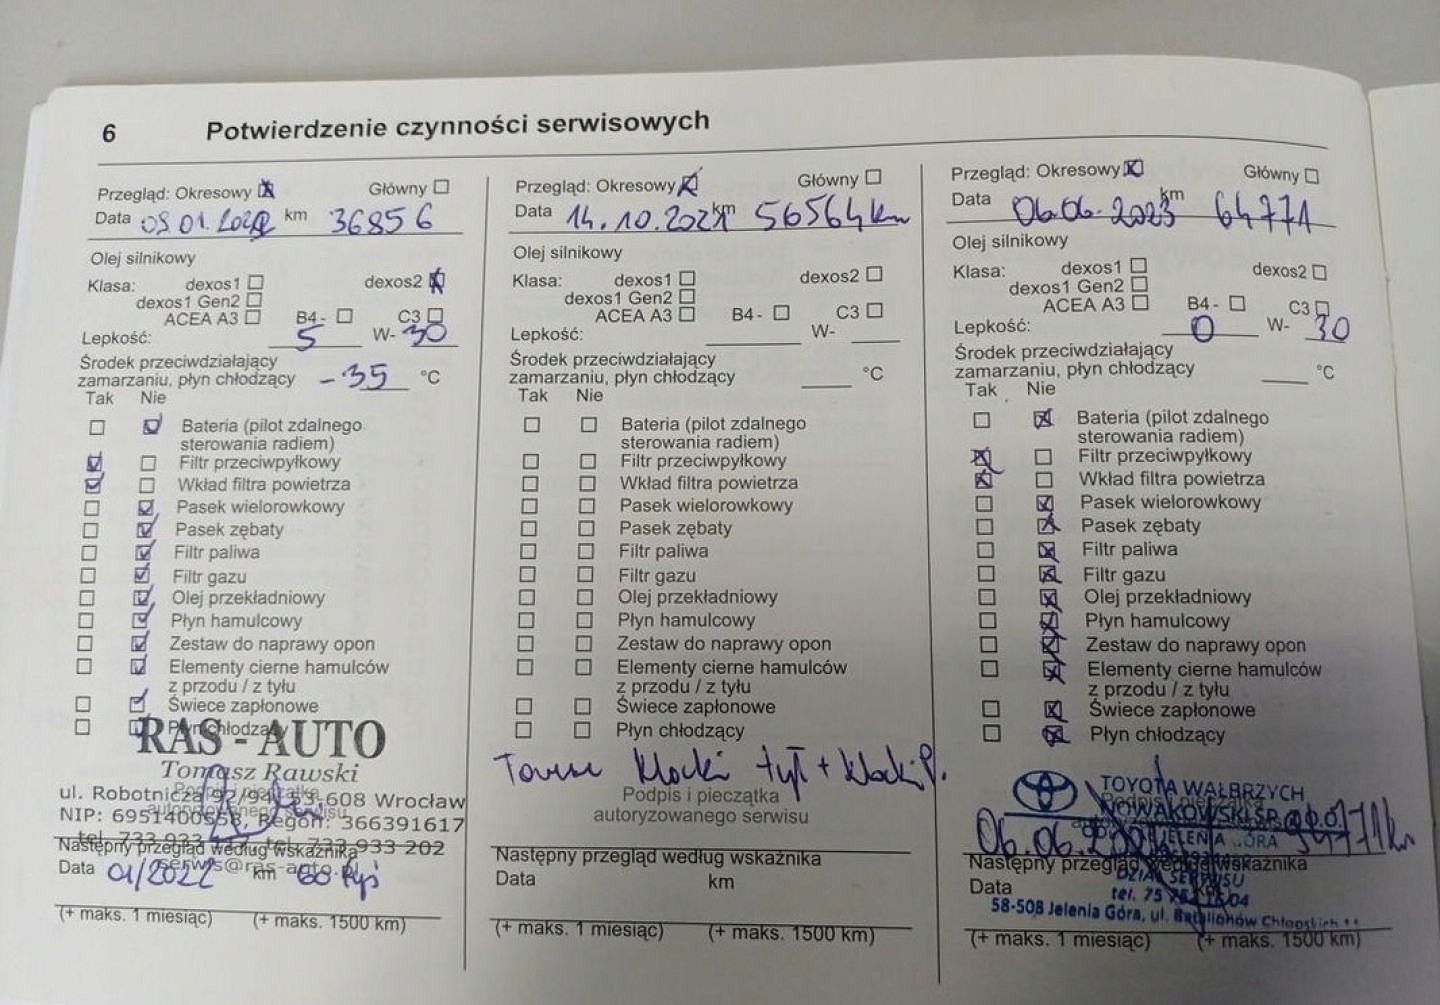 6 Potwierdzenie czynności serwisowych
Przegląd: Okresowy Główny
Data 36856 km
Olej silnikowy
Klasa: dexos1 dexos2
dexos1 Gen2
ACEA A3 B4 - C3
Lepkość: 5 W- 30
Środek przeciwdziałający
zamarzaniu, płyn chłodzący -35 °C
Tak Nie
Bateria (pilot zdalnego
sterowania radiem)
Filtr przeciwpyłkowy
Wkład filtra powietrza
Pasek wielorowkowy
Pasek zębaty
Filtr paliwa
Filtr gazu
Olej przekładniowy
Płyn hamulcowy
Zestaw do naprawy opon
Elementy cierne hamulców
z przodu / z tyłu
Świece zapłonowe
Płyn chłodzący
RAS - AUTO
Tomasz Rawski
ul. Robotnicza 92/94, 53-608 Wrocław
Podpis i pieczątka
autoryzowanego serwisu
NIP: 6951400558, Regon: 366391617
tel. 733 933 tel. 733 933 202
Następny przegląd według wskaźnika
serwis@ras-auto.pl
Data 01/2022 km 60 tyś
(+ maks. 1 miesiąc) (+ maks. 1500 km)
Przegląd: Okresowy Główny
Data 14.10.2021 km 56564 km
Olej silnikowy
Klasa: dexos1 dexos2
dexos1 Gen2
ACEA A3 B4 - C3
Lepkość: W-
Środek przeciwdziałający
zamarzaniu, płyn chłodzący °C
Tak Nie
Bateria (pilot zdalnego
sterowania radiem)
Filtr przeciwpyłkowy
Wkład filtra powietrza
Pasek wielorowkowy
Pasek zębaty
Filtr paliwa
Filtr gazu
Olej przekładniowy
Płyn hamulcowy
Zestaw do naprawy opon
Elementy cierne hamulców
z przodu / z tyłu
Świece zapłonowe
Płyn chłodzący
Tarcze klocki tył + klocki P.
Podpis i pieczątka
autoryzowanego serwisu
Następny przegląd według wskaźnika
Data km
(+ maks. 1 miesiąc) (+ maks. 1500 km)
Przegląd: Okresowy Główny
Data 06.06.2023 km 64771
Olej silnikowy
Klasa: dexos1 dexos2
dexos1 Gen2
ACEA A3 B4 - C3
Lepkość: 0 W- 30
Środek przeciwdziałający
zamarzaniu, płyn chłodzący °C
Tak Nie
Bateria (pilot zdalnego
sterowania radiem)
Filtr przeciwpyłkowy
Wkład filtra powietrza
Pasek wielorowkowy
Pasek zębaty
Filtr paliwa
Filtr gazu
Olej przekładniowy
Płyn hamulcowy
Zestaw do naprawy opon
Elementy cierne hamulców
z przodu / z tyłu
Świece zapłonowe
Płyn chłodzący
TOYOTA WAŁBRZYCH
Podpis i pieczątka
NOWAKOWSKI SP.
JELENIA GÓRA
Następny przegląd według wskaźnika
Data
DZIAŁ SERWISU
tel. 75
58-508 Jelenia Góra, ul. Batalionów Chłopskich
(+ maks. 1 miesiąc) (+ maks. 1500 km)